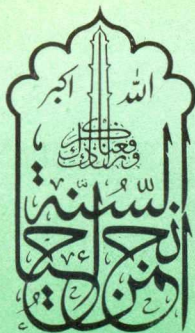 الله اكبر
ورفعنا لك ذكرك
انجمن إحياء السُّنّة